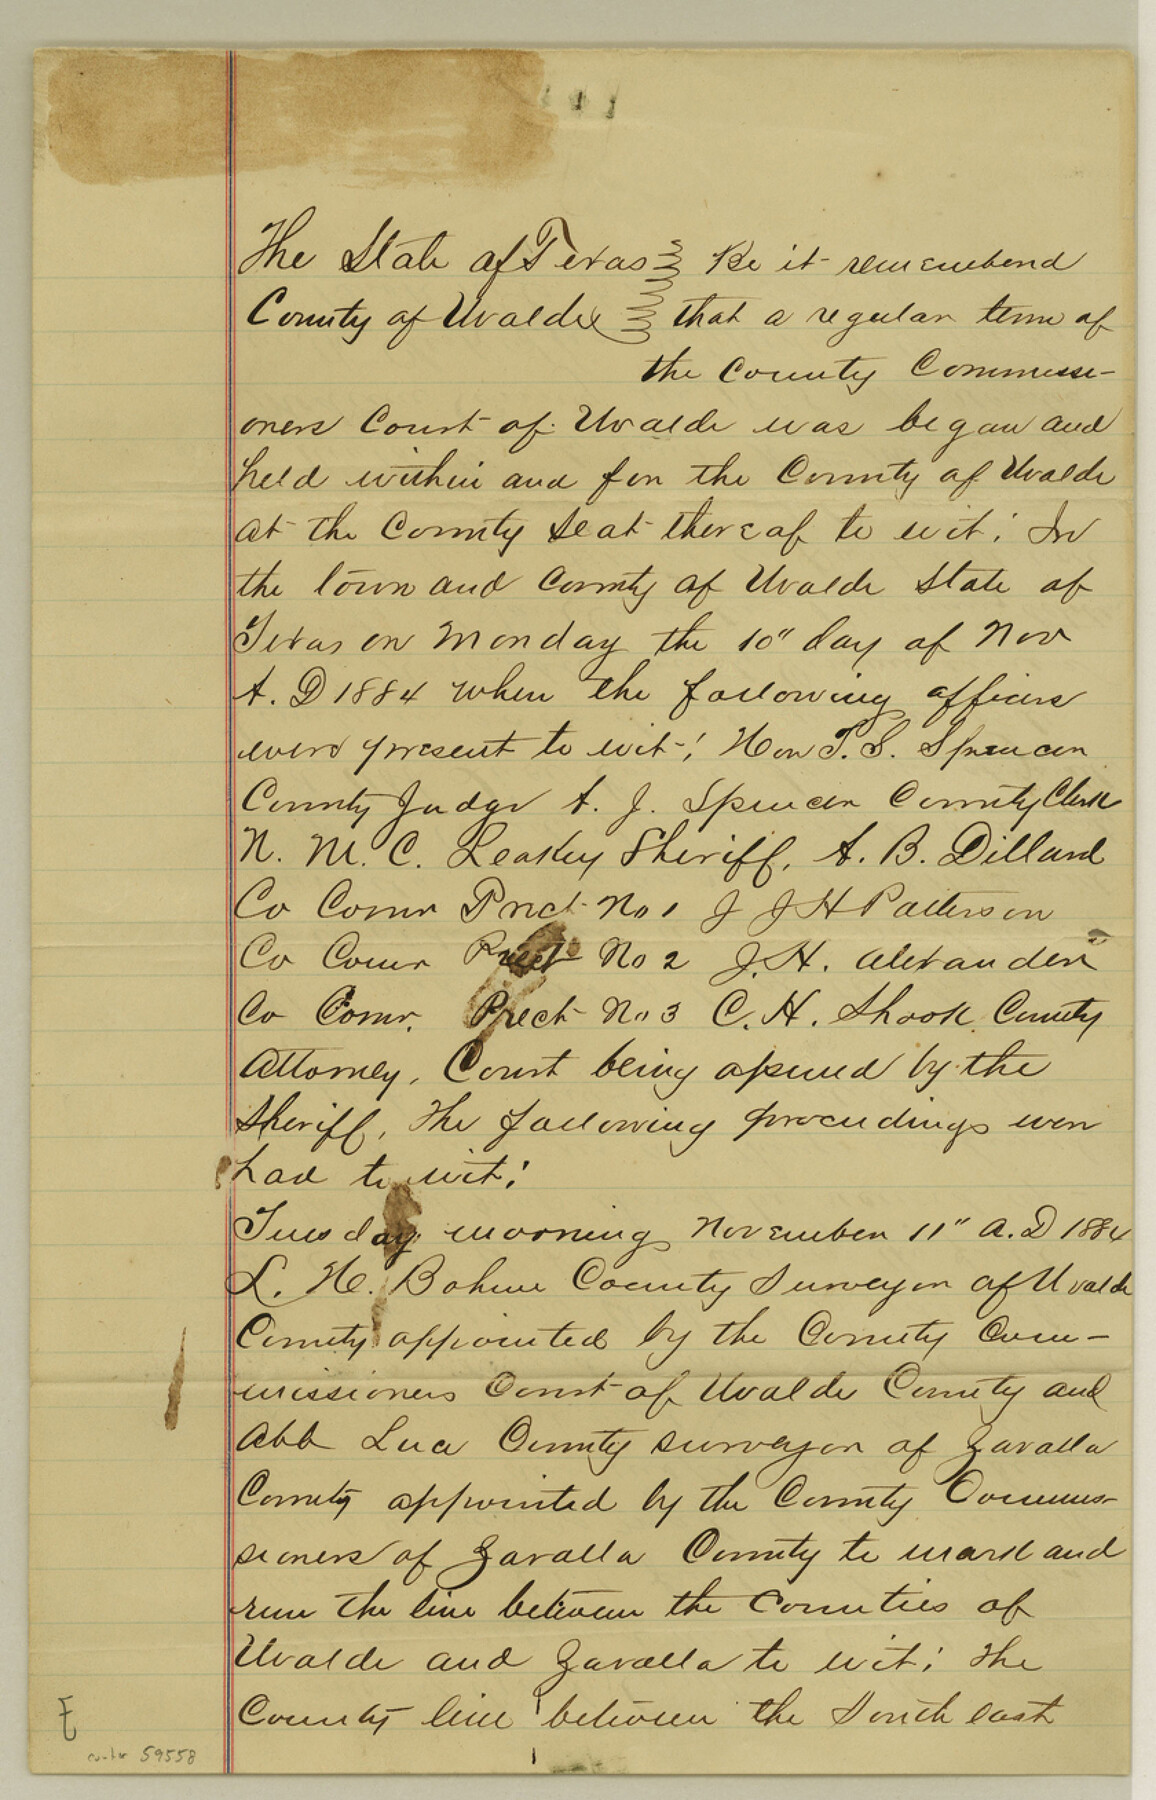 The State of Texas Be it remembered
County of Uvalde that a regular term of
the County Commissi-
oners Court of Uvalde was began and
held within and for the County of Uvalde
at the County Seat thereof to wit: In
the town and County of Uvalde State of
Texas on Monday the 10" day of Nov
A. D 1884 when the following officers
were present to wit:
Hon T. S. Spencer
County Judge A. J. Spencer County Clerk
N. M. C. Leakey Sheriff, A. B. Dillard
Co Comr Prect No 1 J J H Patterson
Co Comr Prect No 2 J. H. Alexander
Co Comr. Prect No 3 C. H. Shook County
Attorney, Court being opened by the
Sheriff, The following proceedings were
had to wit:
Tuesday morning November 11" A. D 1884
L. H. Bohme County Surveyor of Uvalde
County appointed by the County Com-
missioners Court of Uvalde County and
Abb Luce County surveyor of Zavalla
County appointed by the County Commis-
sioners of Zavalla County to mark and
run the line between the Counties of
Uvalde and Zavalla to wit: The
County line between the South east
counter 59558